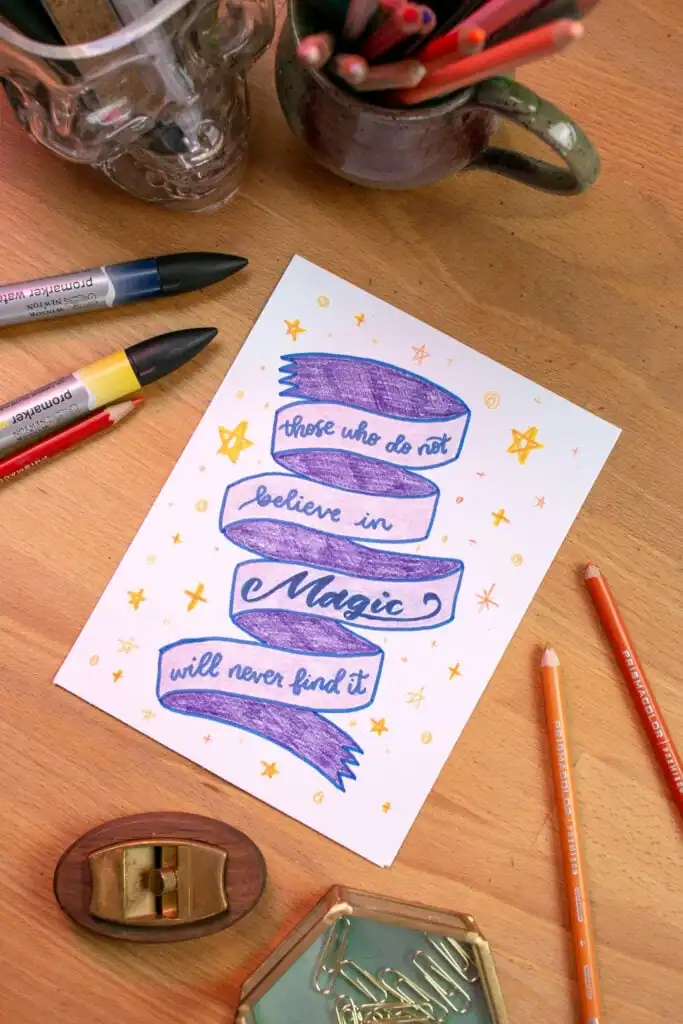 those who do not
believe in
Magic
will never find it
promarker wate
WINSOR & NEWTON
promarker
WINSOR & NEWTON
PRISMACOLOR
PRISMACOLOR PREMIER